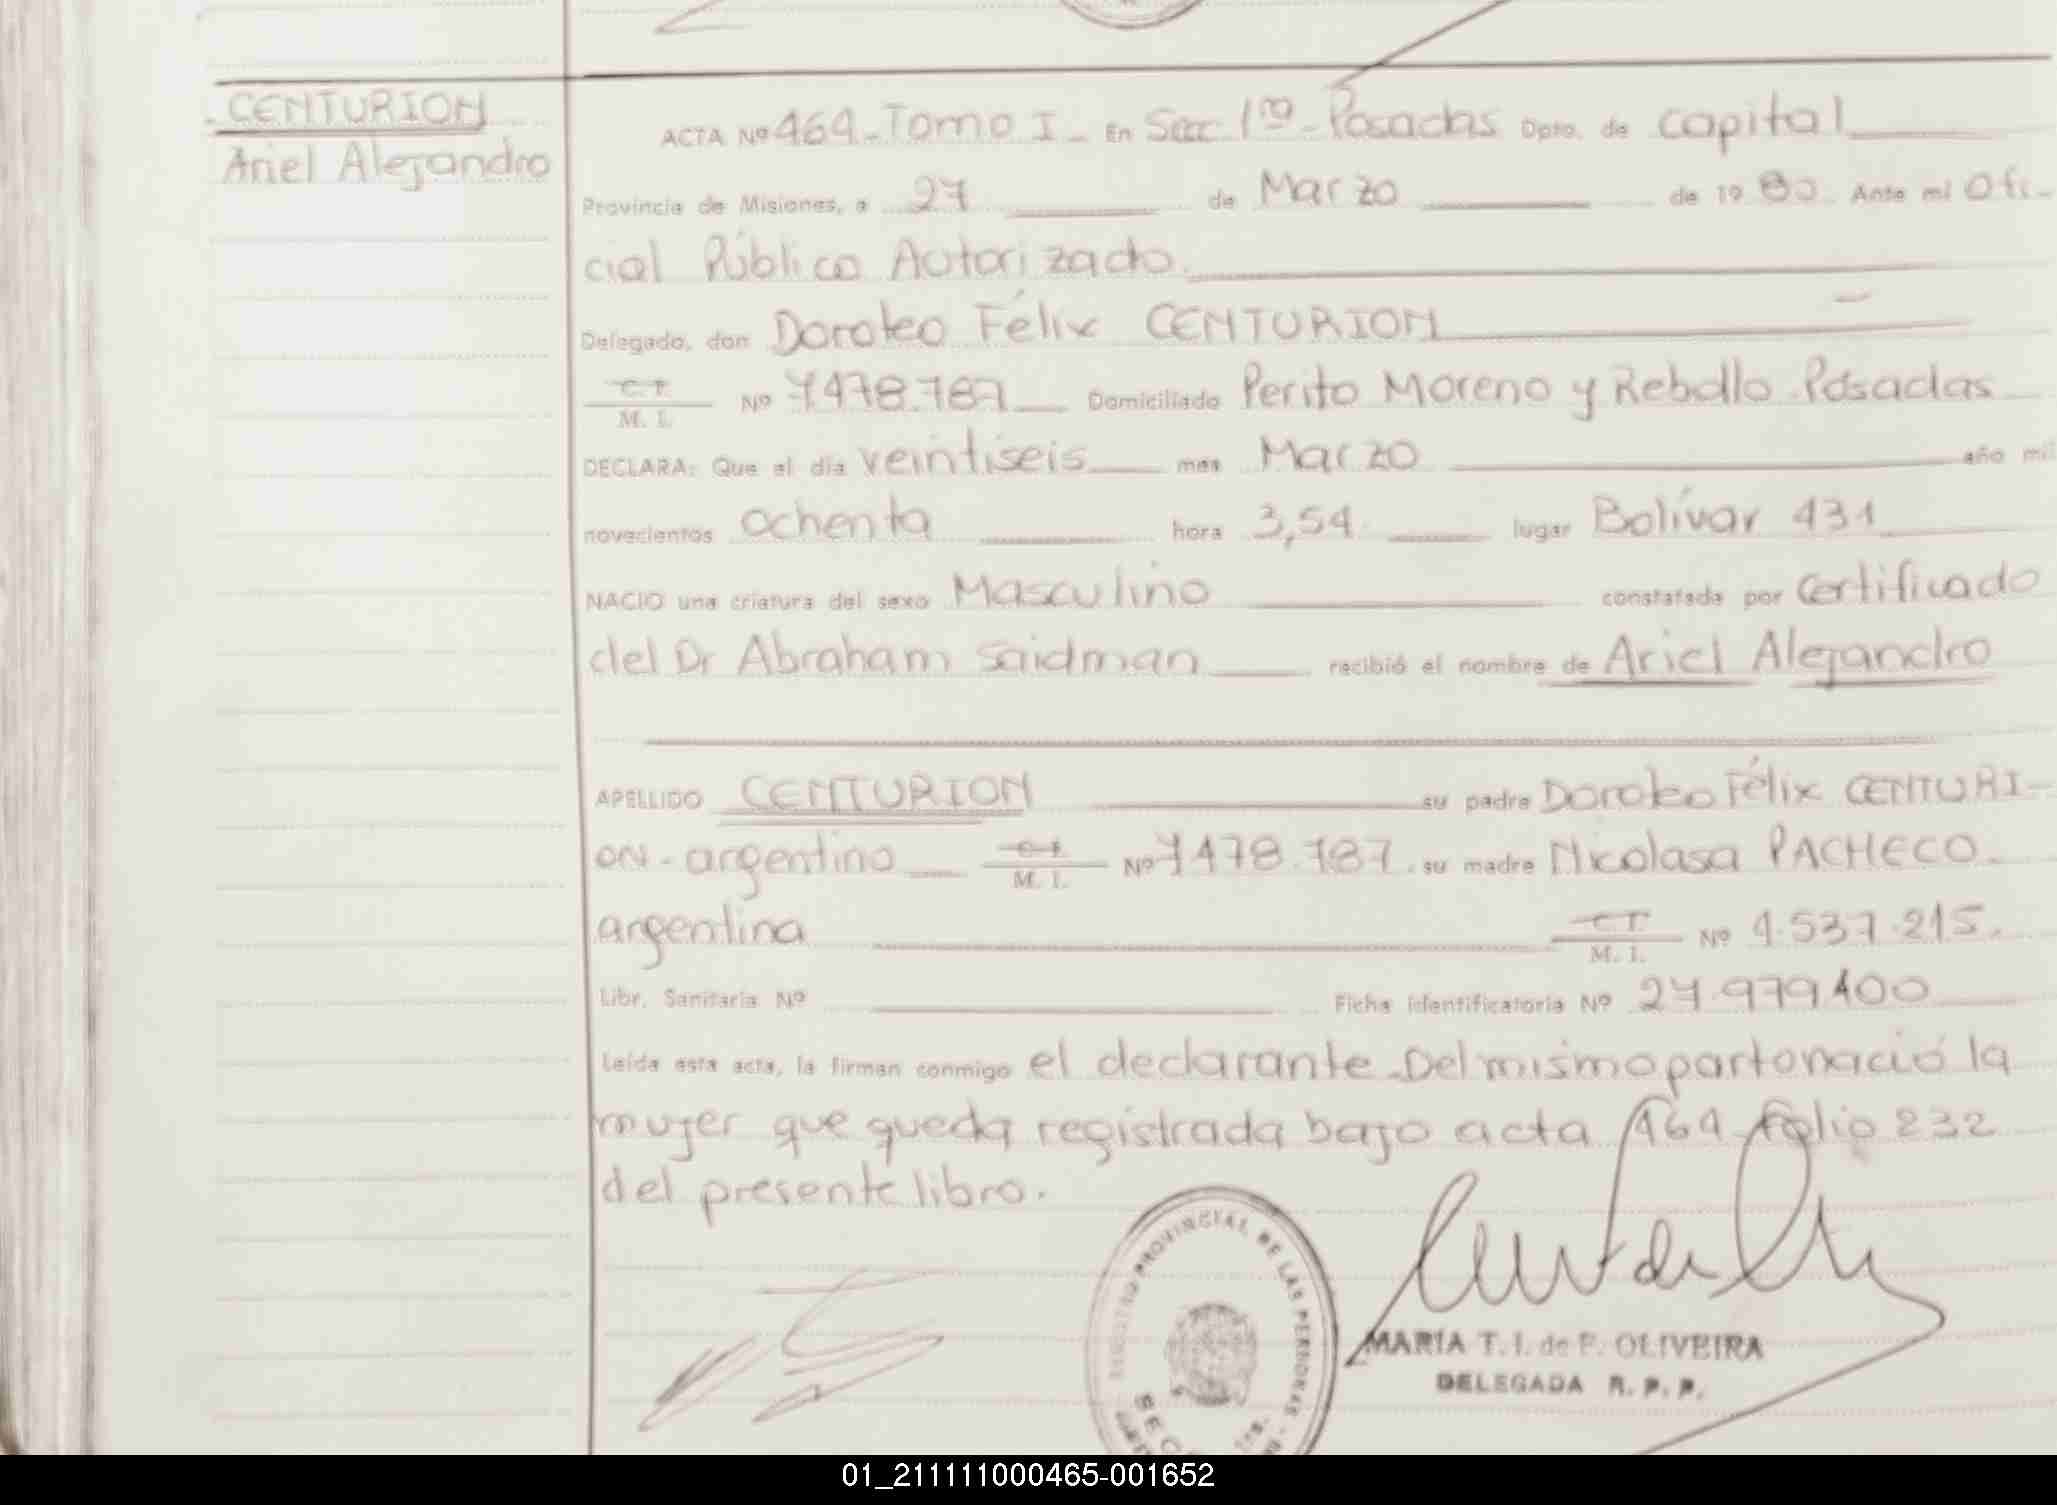 CENTURION
Ariel Alejandro
ACTA Nº 464-Tomo I- En Secc 1ra-Posadas Dpto. de capital
Provincia de Misiones, a 27 de Marzo de 1980. Ante mi Ofi-
cial Público Autorizado.
Delegado, don Doroteo Félix CENTURION
C.I. M. I. Nº 7478.787 Domiciliado Perito Moreno y Rebollo Posadas
DECLARA: Que el día veintiseis mes Marzo año mil
novecientos ochenta hora 3,54 lugar Bolívar 431
NACIO una criatura del sexo Masculino constatada por certificado
del Dr Abraham Saidman recibió el nombre de Ariel Alejandro
APELLIDO CENTURION su padre Doroteo Félix CENTURI-
ON-argentino C.I. M. I. Nº 7478.787. su madre Nicolasa PACHECO.
argentina C.I. M. I. Nº 4.537.215.
Libr. Sanitaria Nº Ficha identificatoria Nº 27.979.400
Leída esta acta, la firman conmigo el declarante.Del mismo parto nació la
mujer que queda registrada bajo acta 464 folio 232
del presente libro.
REGISTRO PROVINCIAL DE LAS PERSONAS
MARIA T. I. de P. OLIVEIRA
DELEGADA R. P. P.
01_211111000465-001652